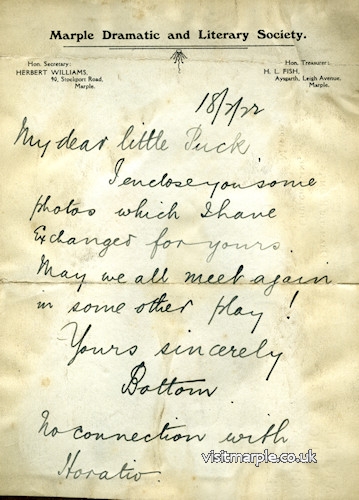 Marple Dramatic and Literary Society.
Hon. Secretary:
HERBERT WILLIAMS,
90, Stockport Road,
Marple.
Hon. Treasurer:
H. L. FISH,
Aysgarth, Leigh Avenue,
Marple.
18/7/22
My dear little Puck
I enclose you some
photos which I have
Exchanged for yours.
May we all meet again
in some other play!
Yours sincerely
Bottom
No connection with
Horatio.
visitmarple.co.uk